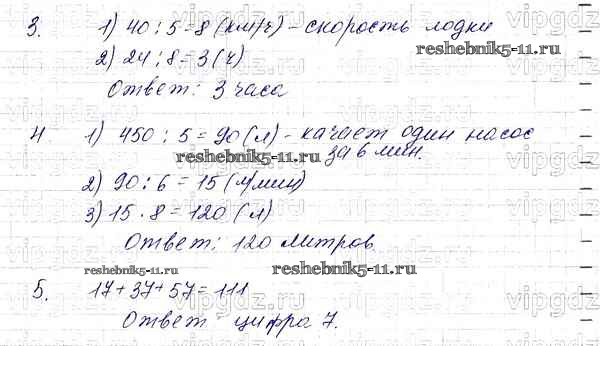 3. 1) 40 : 5 = 8 (км/ч) - скорость лодки
reshebnik5-11.ru
2) 24 : 8 = 3 (ч)
Ответ: 3 часа
4. 1) 450 : 5 = 90 (л) - качает один насос
за 6 мин.
reshebnik5-11.ru
2) 90 : 6 = 15 (л/мин)
3) 15 · 8 = 120 (л)
Ответ: 120 литров.
reshebnik5-11.ru reshebnik5-11.ru
5. 17 + 37 + 57 = 111
Ответ цифра 7.
vipgdz.ru